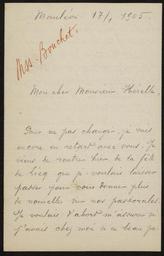 Mauléon 17/1, 1905.
Mss. Bouchet.
Mon cher Monsieur Hérelle,
Pour ne pas changer, je suis
encore en retard avec vous. Je
viens de rentrer hier de la fête
de Licq que je voulais laisser
passer pour vous donner plus
de nouvelles sur nos pastorales.
Je voulais d'abord m'assurer si
j'avais chez moi de